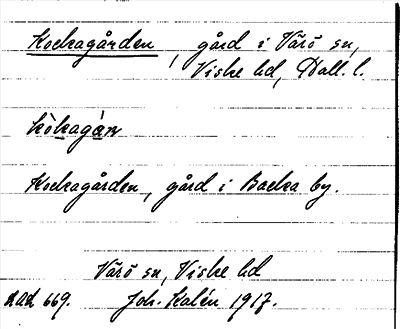 Kockagården, gård i Värö sn,
Viske hd, Hall. l.
kòkagàn
Kockagården, gård i Backa by.
Värö sn, Viske hd
aad 669. Joh. Kalén 1917.